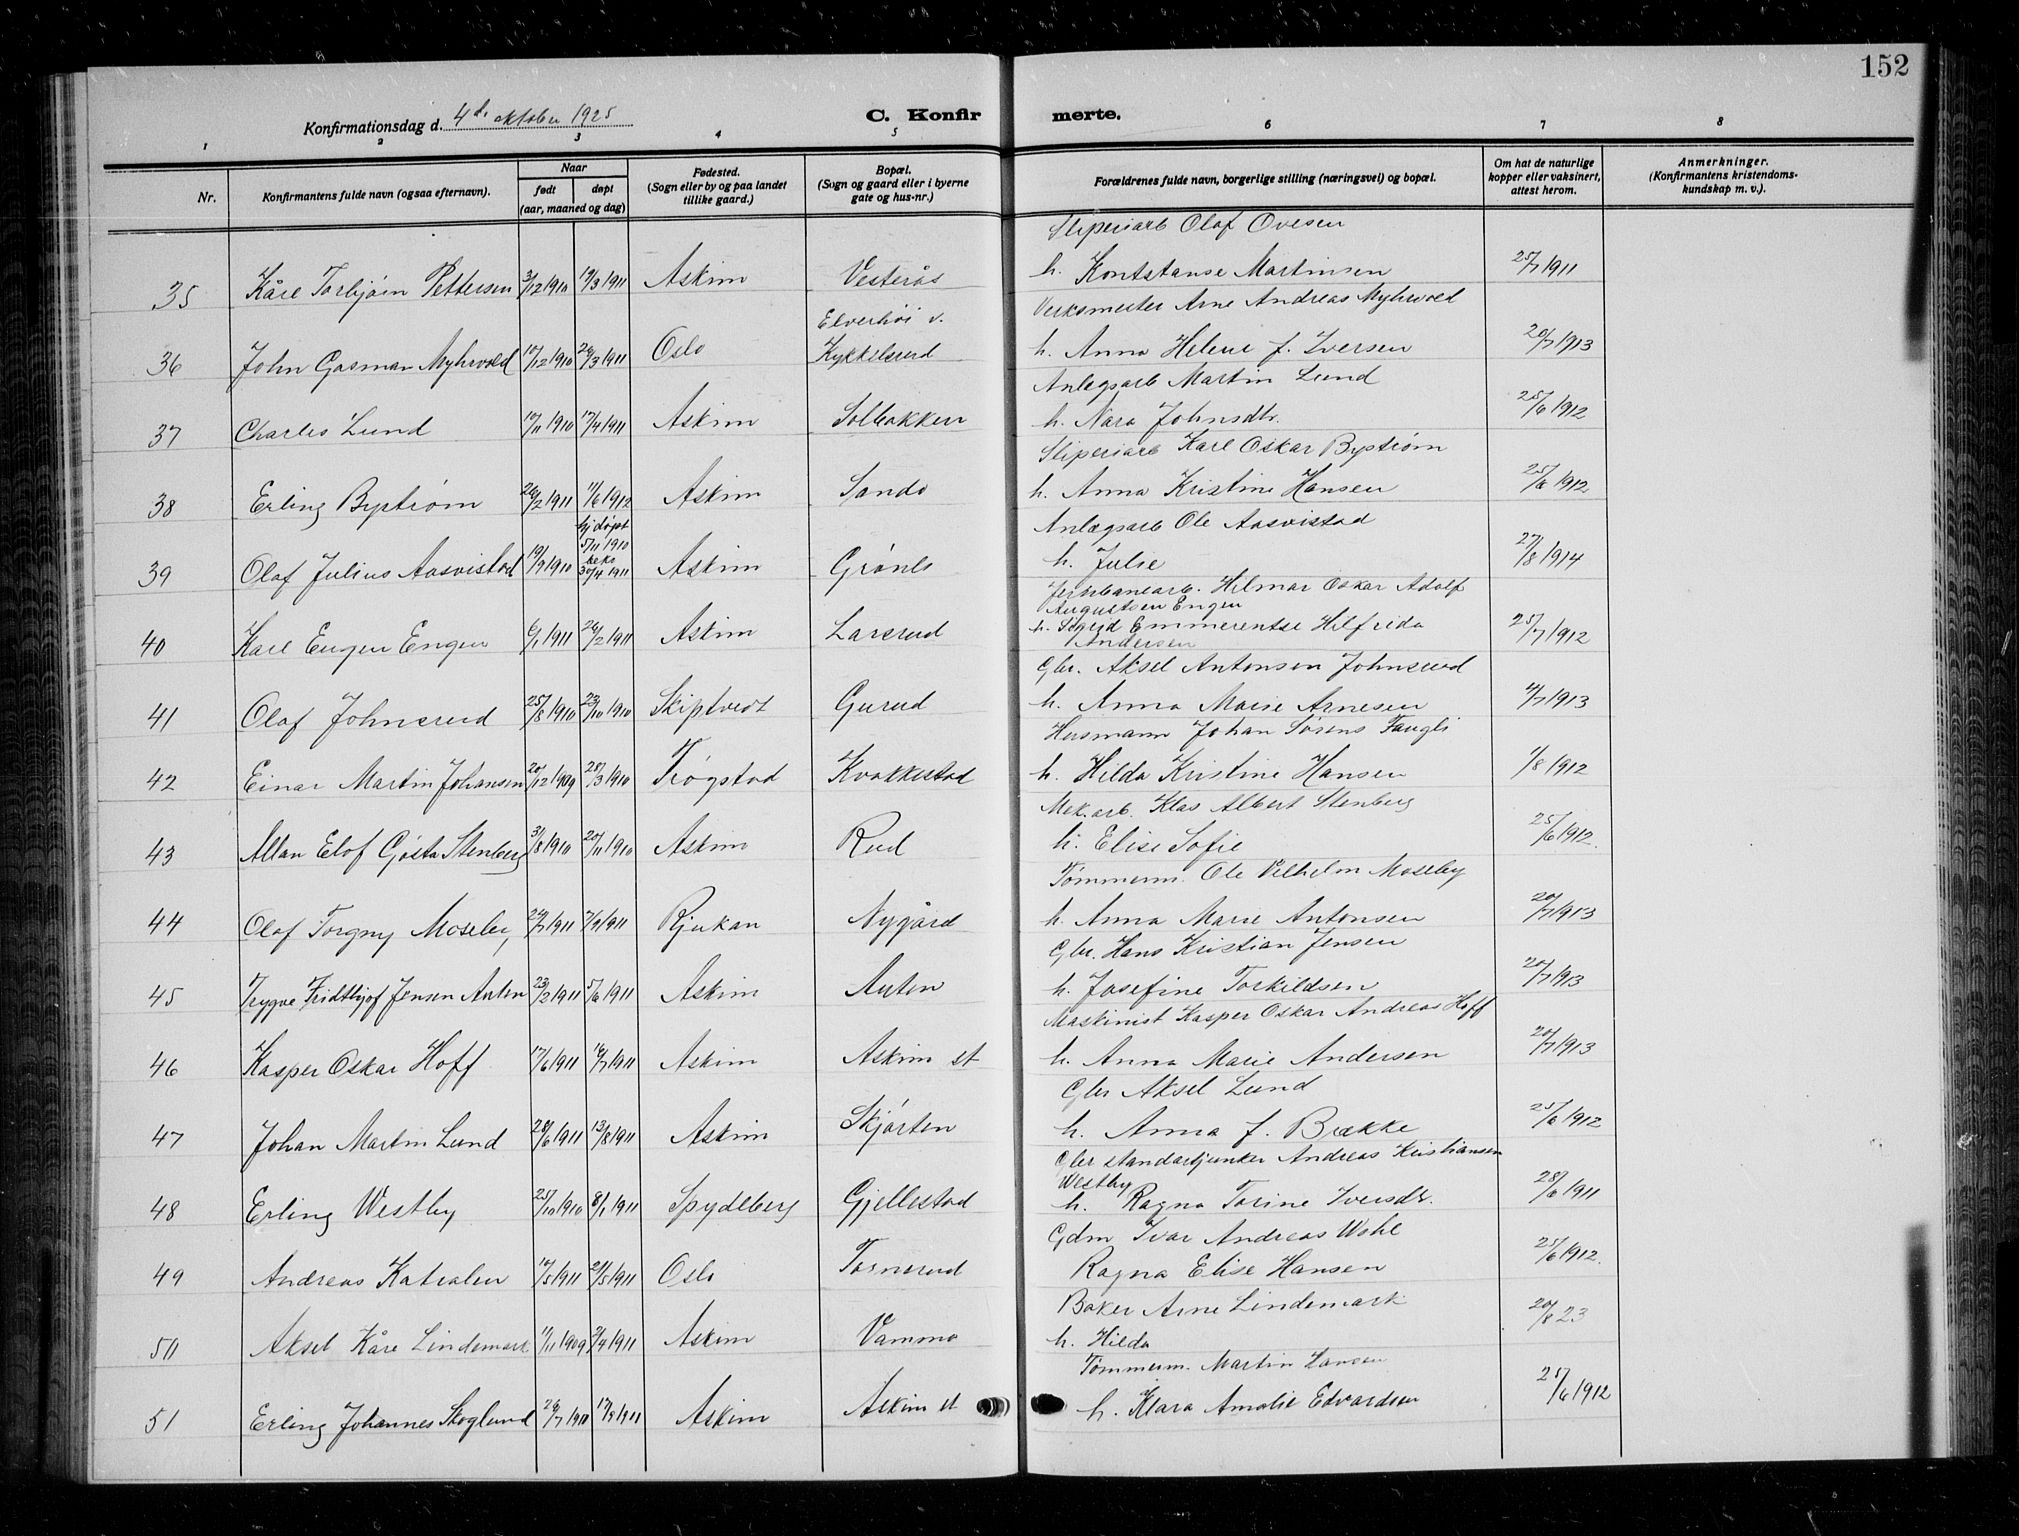 152
Konfirmationsdag d. 4de oktober 1925
C. Konfir merte.
1 2 3 4 5 6 7 8
Nr. Konfirmantens fulde navn (ogsaa efternavn). Naar født døpt (aar, maaned og dag) Fødested. (Sogn eller by og paa landet tillike gaard.) Bopæl. (Sogn og gaard eller i byerne gate og hus-nr.) Forældrenes fulde navn, borgerlige stilling (næringsvei) og bopæl. Om hat de naturlige kopper eller vaksinert, attest herom. Anmerkninger. (Konfirmantens kristendoms- kundskap m. v.).
Sliperiarb Olaf Ovesen
35 Kåre Torbjørn Pettersen 3/12 1910 19/3 1911 Askim Vesterås h. Konstanse Martinsen 25/7 1911
Elverhøi v. Verksmester Arne Andreas Myhrvold
36 John Gasman Myhrvold 10/12 1910 26/3 1911 Oslo Kykkelsrud h. Anna Helene f. Iversen 20/7 1913
Anlegsarb Martin Lund
37 Charles Lund 10/11 1910 17/4 1911 Askim Solbakken h. Nara Johnsdtr. 25/6 1912
Sliperiarb Karl Oskar Bystrøm
38 Erling Bystrøm 26/2 1911 1/6 1912 Askim Sando h. Anna Kristine Hansen 25/6 1912
hj døpt Anlegsarb Ole Aasvistad
39 Olaf Julius Aasvistad 19/9 1910 5/11 1910 beks 30/4 1911 Askim Grønli h. Julie 27/8 1914
Jernbanearb. Hilmar Oskar Adolf
Augustsen Engen
40 Karl Eugen Engen 6/1 1911 26/2 1911 Askim Larsrud h. Sigrid Emmerentse Hilfrida 25/7 1912
Andersen
Gbr. Aksel Antonsen Johnsrud
41 Olaf Johnsrud 25/8 1910 23/10 1910 Skiptvedt Gurud h. Anna Marie Arnesen 1913
Husmann Johan Sørens Faugli
42 Einar Martin Johansen 20/12 1909 28/3 1910 Trøgstad Kvakkestad h. Hilda Kristine Hansen 1/8 1912
Mek.arb. Klas Albert Stenberg
43 Allan Elof Gösta Stenberg 31/8 1910 20/11 1910 Askim Rud h. Elise Sofie 25/6 1912.
Tømmerm. Ole Vilhelm Moseby
44 Olaf Torgny Moseby 1911 7/9 1911 Rjukan Nygård h. Anna Marie Antonsen 20/7 1913
Gbr. Hans Kristian Jensen
45 Trygve Fridthjof Jensen Auten 23/2 1911 5/6 1911 Askim Auten h. Josefine Torkildsen 20/7 1913
Maskinist Kasper Oskar Andreas Hoff
46 Kasper Oskar Hoff 17/6 1911 16/7 1911 Askim Askim st h. Anna Marie Andersen 20/7 1913
Gbr Aksel Lund
47 Johan Martin Lund 28/6 1911 13/8 1911 Askim Skjørten h. Anna f. Bække 25/6 1912
Gbr standartjunker Andreas Kristiansen
Westby
48 Erling Westby 25/10 1910 8/1 1911 Spydeberg Gjellestad h. Ragna Torine Iversdr. 28/6 1911
Gdm Ivar Andreas Wohl
49 Andreas Katralen 10/5 1911 21/5 1911 Oslo Tornerud Ragna Elise Hansen 25/6 1912.
Baker Arne Lindemark
50 Aksel Kåre Lindemark 11/11 1909 2/4 1911 Askim Vamma h. Hilda 20/8 23
Tømmerm. Martin Larsen
51 Erling Johannes Skoglund 26/7 1911 17/9 1911 Askim Askim st h. Klara Amalie Edvardsen 25/6 1912